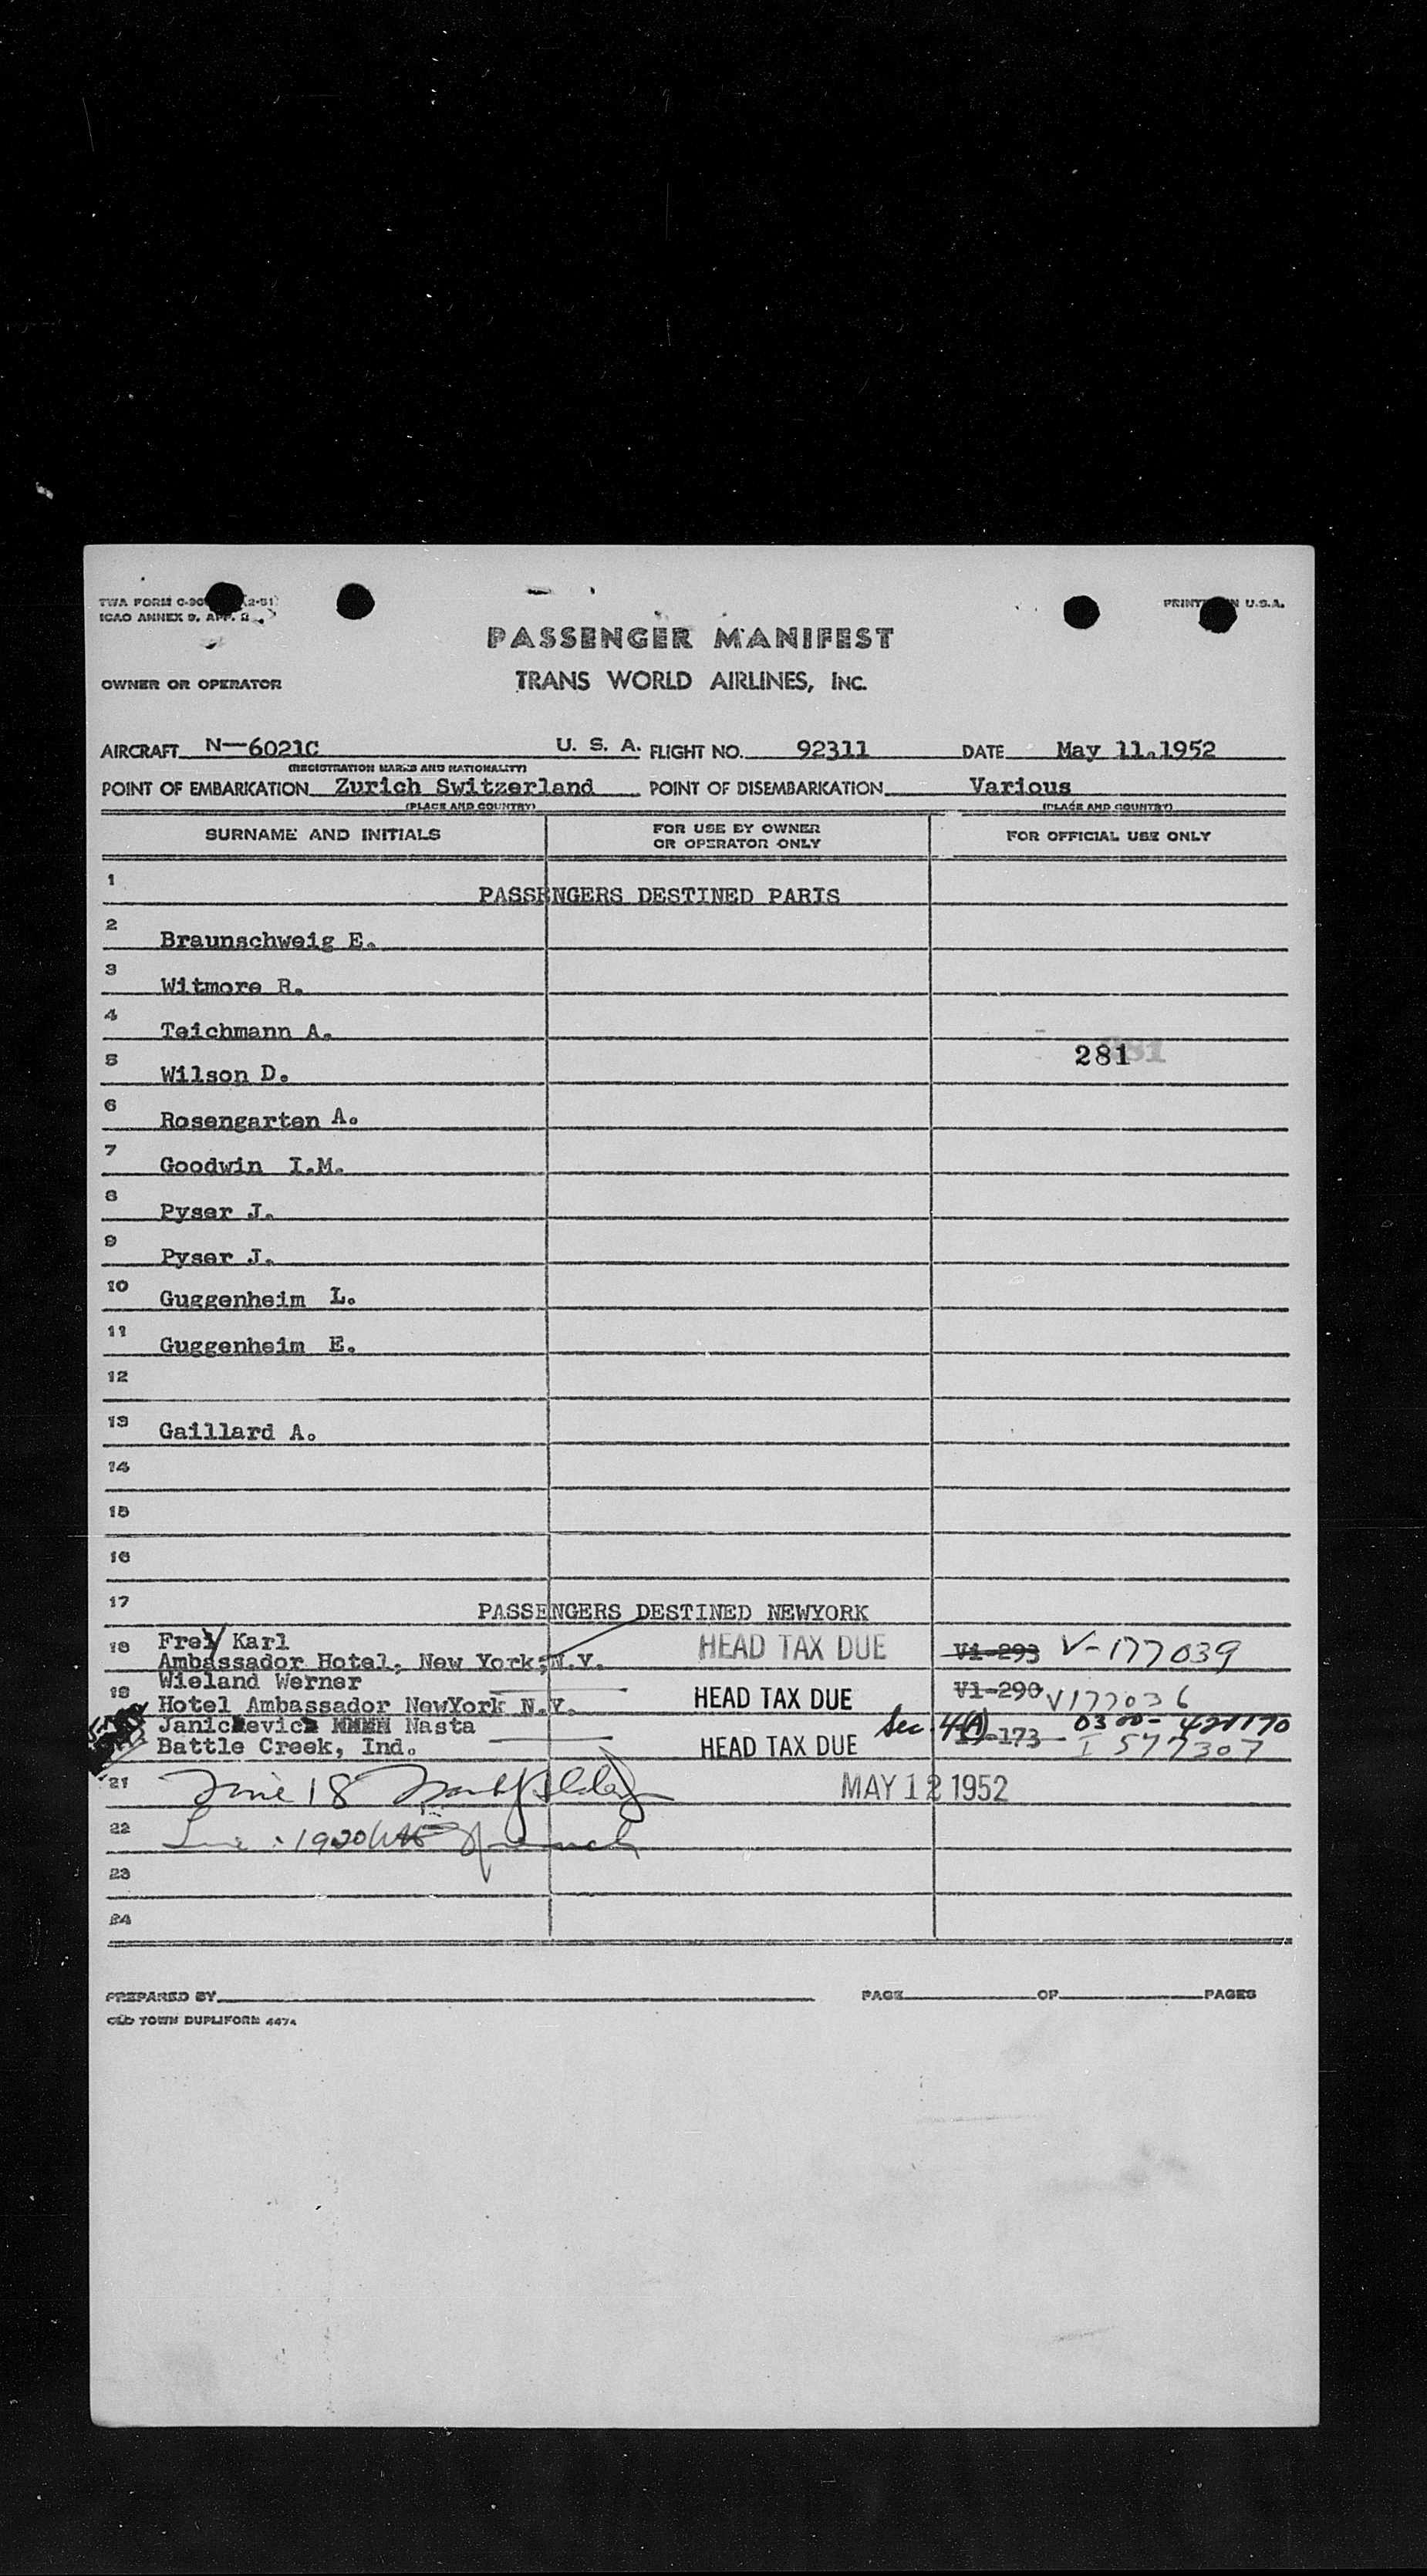 TWA FORM C-30 (2-51)
ICAO ANNEX 9, APP. 2
PRINTED IN U.S.A.
PASSENGER MANIFEST
OWNER OR OPERATOR TRANS WORLD AIRLINES, INC.
AIRCRAFT N-6021C U. S. A. FLIGHT NO. 92311 DATE May 11.1952
(REGISTRATION MARKS AND NATIONALITY)
POINT OF EMBARKATION Zurich Switzerland POINT OF DISEMBARKATION Various
(PLACE AND COUNTRY) (PLACE AND COUNTRY)
SURNAME AND INITIALS FOR USE BY OWNER OR OPERATOR ONLY FOR OFFICIAL USE ONLY
1 PASSENGERS DESTINED PARIS
2 Braunschweig E.
3 Witmore R.
4 Teichmann A.
281
5 Wilson D.
6 Rosengarten A.
7 Goodwin I.M.
8 Pyser J.
9 Pyser J.
10 Guggenheim L.
11 Guggenheim E.
12
13 Gaillard A.
14
15
16
17 PASSENGERS DESTINED NEWYORK
18 Frey Karl HEAD TAX DUE V1-293 V-177039
Ambassador Hotel, New York, N.Y.
19 Wieland Werner HEAD TAX DUE V1-290 V177036
Hotel Ambassador NewYork N.Y.
Nasta Sec. 4(A) 0300-421170
Battle Creek, Ind. HEAD TAX DUE -173 I 577307
21 June 18 MAY 12 1952
22
23
24
PREPARED BY PAGE OF PAGES
OLD TOWN DUPLIFORM 4474